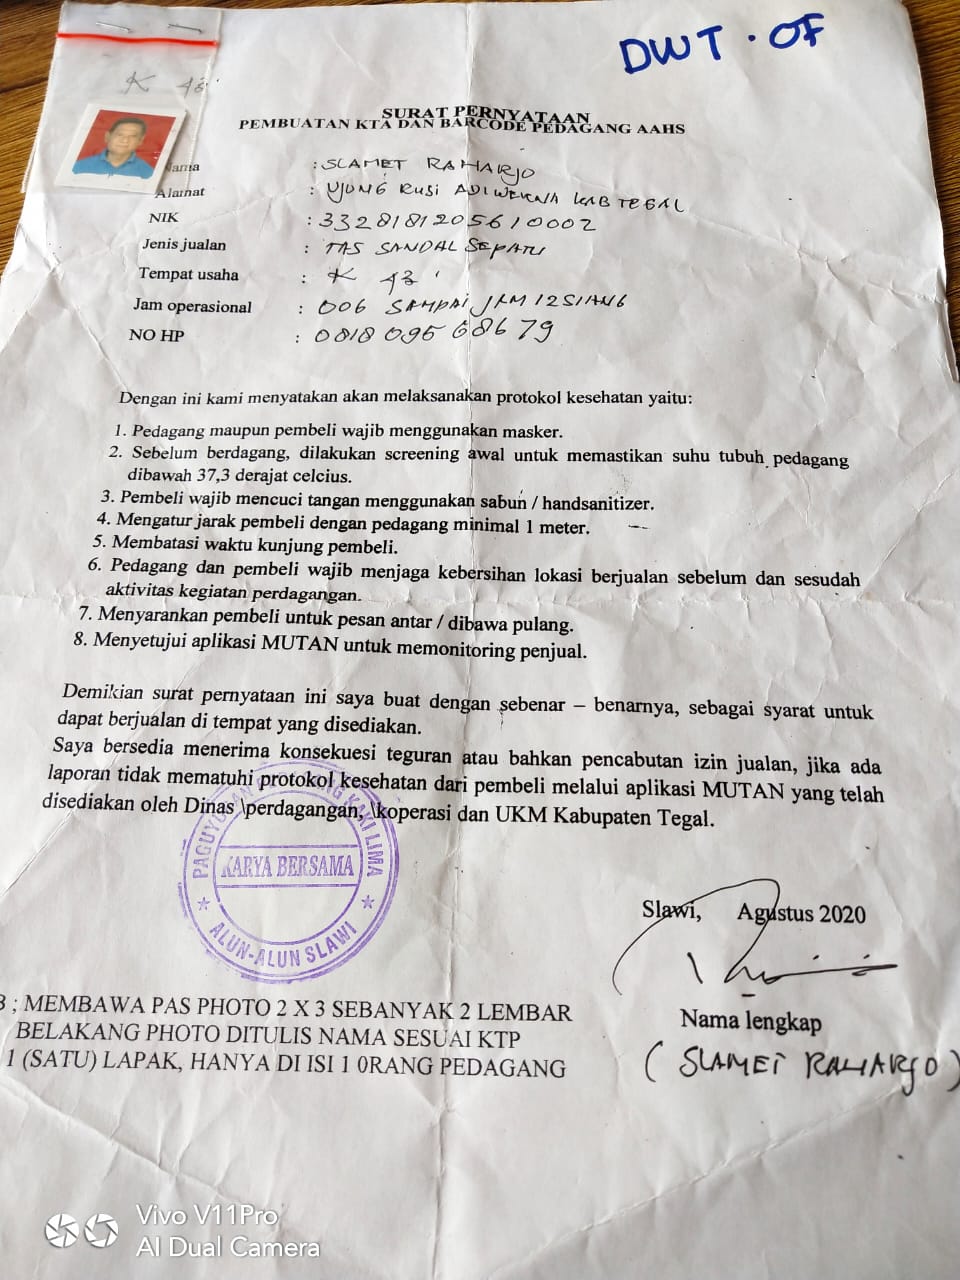 DWT . OF
K 43
SURAT PERNYATAAN
PEMBUATAN KTA DAN BARCODE PEDAGANG AAHS
Nama : SLAMET RAHARJO
Alamat : UJUNG RUSI ADIWERNA KAB TEGAL
NIK : 3328181205610002
Jenis jualan : TAS SANDAL SEPATU
Tempat usaha : K 43
Jam operasional : 006 SAMPAI JAM 12 SIANG
NO HP : 0818 095 68679
Dengan ini kami menyatakan akan melaksanakan protokol kesehatan yaitu:
1. Pedagang maupun pembeli wajib menggunakan masker.
2. Sebelum berdagang, dilakukan screening awal untuk memastikan suhu tubuh pedagang
dibawah 37,3 derajat celcius.
3. Pembeli wajib mencuci tangan menggunakan sabun / handsanitizer.
4. Mengatur jarak pembeli dengan pedagang minimal 1 meter.
5. Membatasi waktu kunjung pembeli.
6. Pedagang dan pembeli wajib menjaga kebersihan lokasi berjualan sebelum dan sesudah
aktivitas kegiatan perdagangan.
7. Menyarankan pembeli untuk pesan antar / dibawa pulang.
8. Menyetujui aplikasi MUTAN untuk memonitoring penjual.
Demikian surat pernyataan ini saya buat dengan sebenar – benarnya, sebagai syarat untuk
dapat berjualan di tempat yang disediakan.
Saya bersedia menerima konsekuesi teguran atau bahkan pencabutan izin jualan, jika ada
laporan tidak mematuhi protokol kesehatan dari pembeli melalui aplikasi MUTAN yang telah
disediakan oleh Dinas \perdagangan, \koperasi dan UKM Kabupaten Tegal.
PAGUYUBAN PEDAGANG KAKI LIMA
KARYA BERSAMA
ALUN-ALUN SLAWI
Slawi, Agustus 2020
Nama lengkap
( SLAMET RAHARJO )
B ; MEMBAWA PAS PHOTO 2 X 3 SEBANYAK 2 LEMBAR
BELAKANG PHOTO DITULIS NAMA SESUAI KTP
1 (SATU) LAPAK, HANYA DI ISI 1 0RANG PEDAGANG
Vivo V11Pro
AI Dual Camera